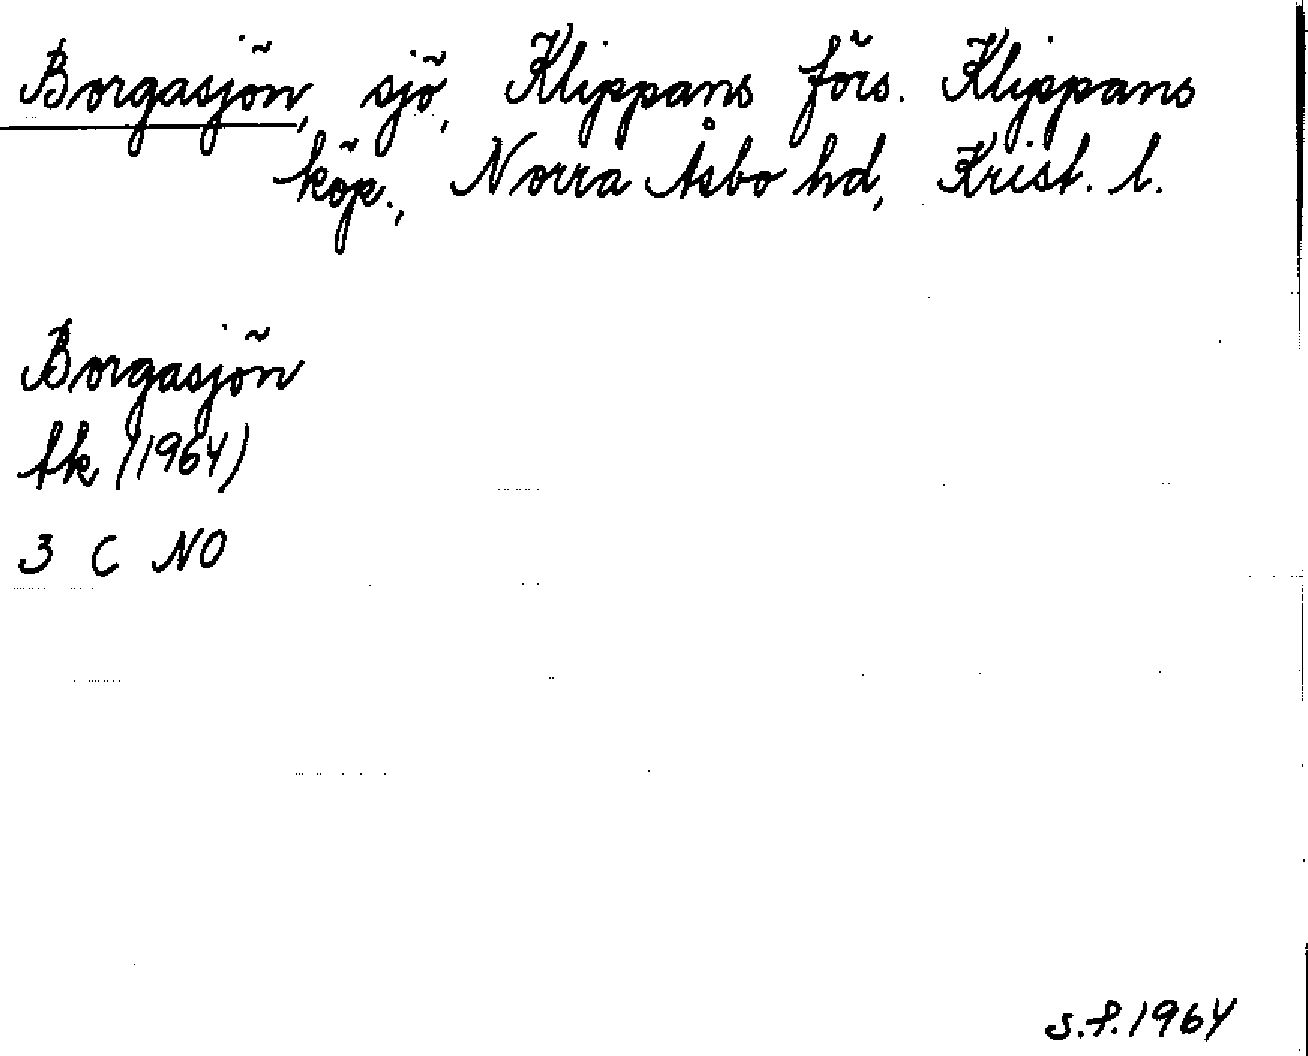 Borgasjön, sjö, Klippans förs. Klippans
köp., Norra Åsbo hd, Krist. l.
Borgasjön
tk (1964)
3 C NO
s.f. 1964